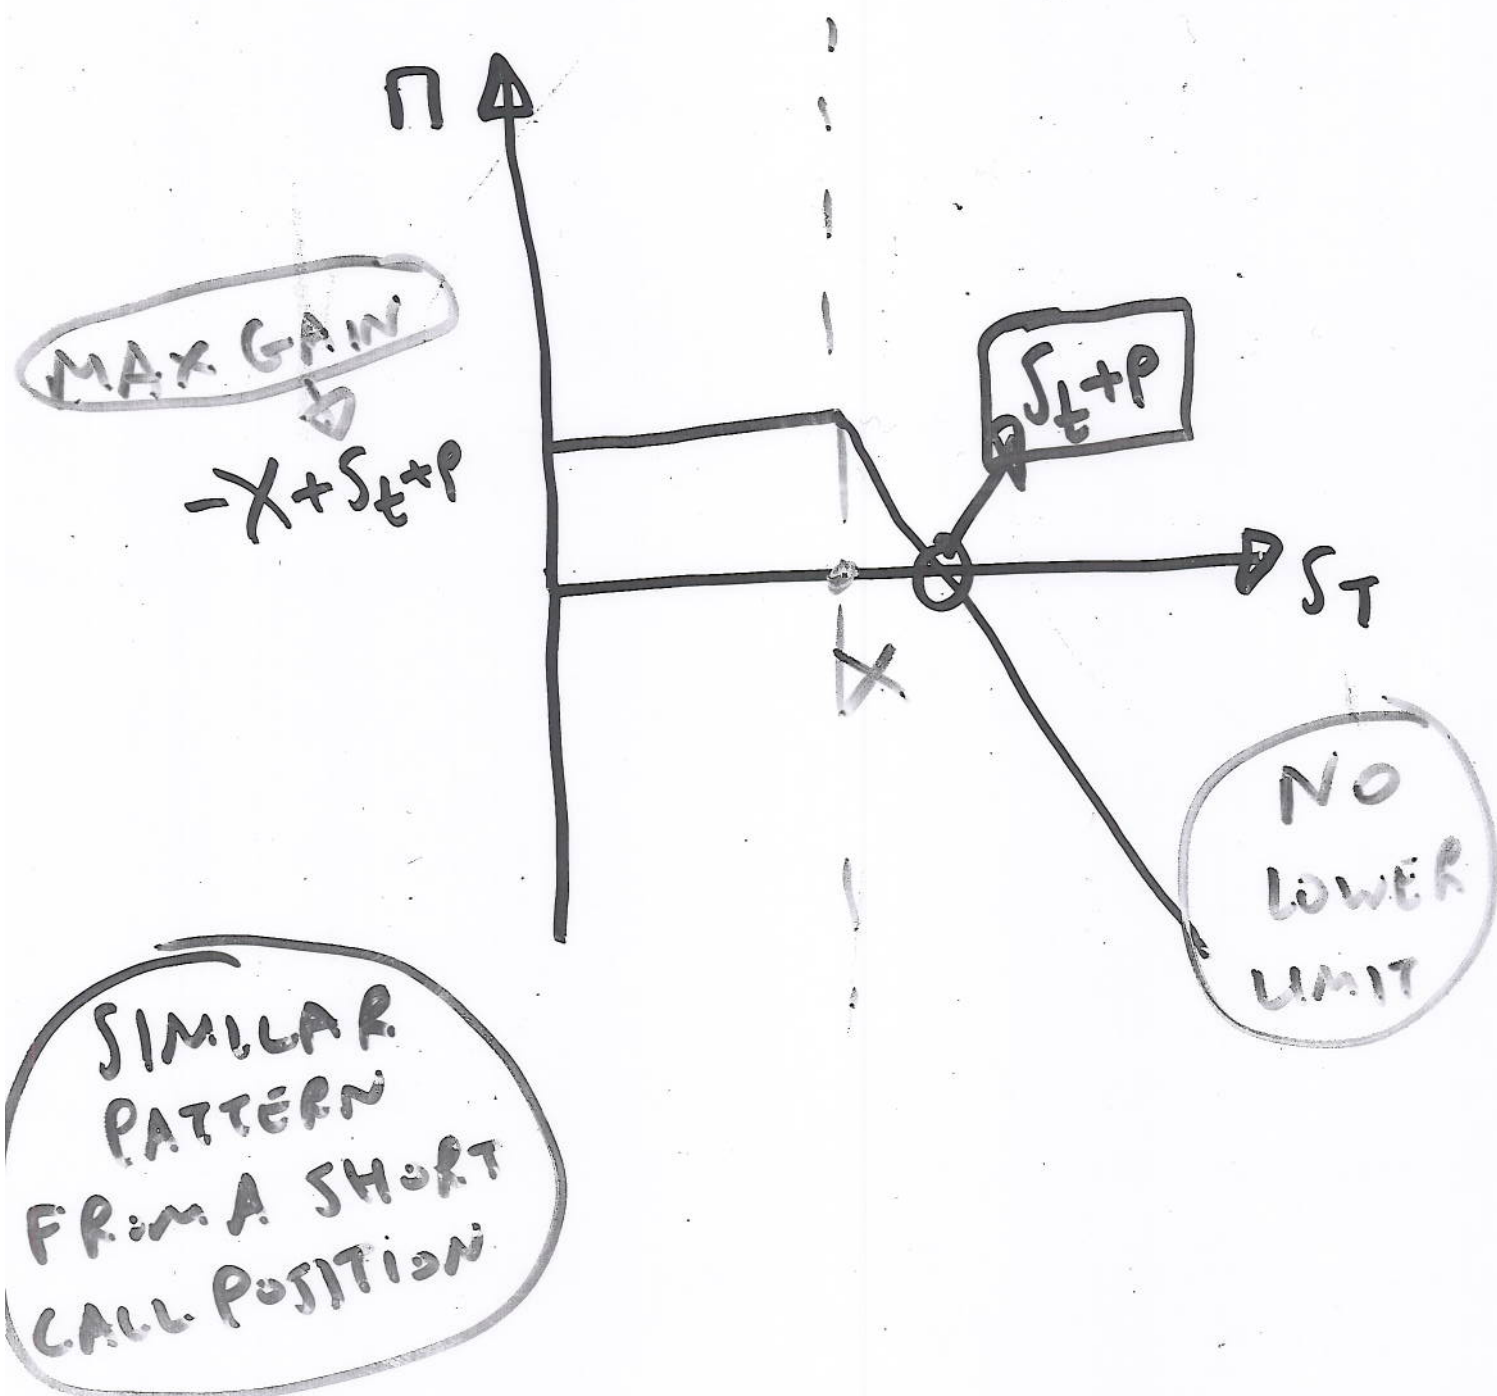 Π
MAX GAIN
-X+St+P
St+P
ST
X
NO
LOWER
LIMIT
SIMILAR
PATTERN
FROM A SHORT
CALL POSITION